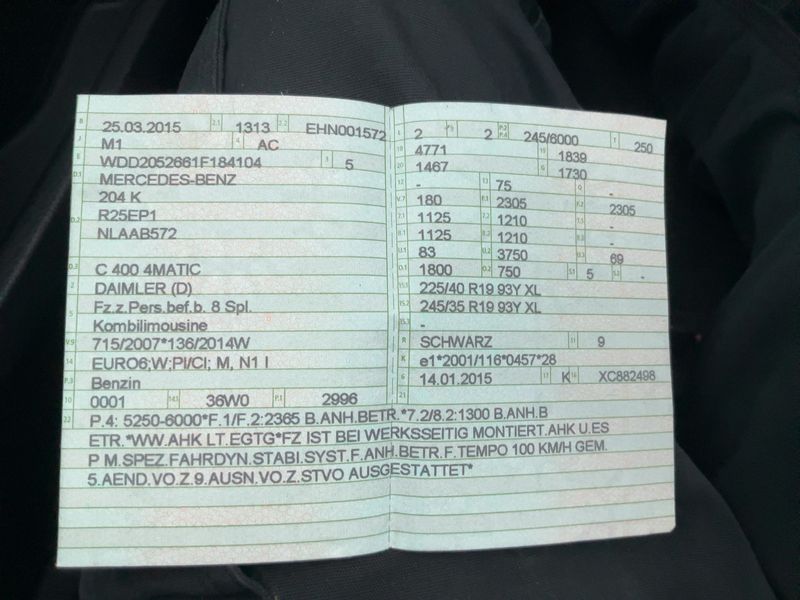 B 25.03.2015 2.1 1313 2.2 EHN001572
J M1 4 AC
E WDD2052661F184104 3 5
D.1 MERCEDES-BENZ
204 K
D.2 R25EP1
NLAAB572
D.3 C 400 4MATIC
2 DAIMLER (D)
5 Fz.z.Pers.bef.b. 8 Spl.
Kombilimousine
V.9 715/2007*136/2014W
14 EURO6;W;PI/CI; M, N1 I
P.3 Benzin
10 0001 14.1 36W0 P.1 2996
L 2 9 2 P.2 P.4 245/6000 T 250
18 4771 19 1839
20 1467 G 1730
12 - 13 75 Q -
V.7 180 F.1 2305 F.2 2305
7.1 1125 7.2 1210 7.3 -
8.1 1125 8.2 1210 8.3 -
U.1 83 U.2 3750 U.3 69
O.1 1800 O.2 750 S.1 5 S.2 -
15.1 225/40 R19 93Y XL
15.2 245/35 R19 93Y XL
15.3 -
R SCHWARZ 11 9
K e1*2001/116*0457*28
6 14.01.2015 17 K 16 XC882498
21
22 P.4: 5250-6000*F.1/F.2:2365 B.ANH.BETR.*7.2/8.2:1300 B.ANH.B
ETR.*WW.AHK LT.EGTG*FZ IST BEI WERKSSEITIG MONTIERT.AHK U.ES
P M.SPEZ.FAHRDYN.STABI.SYST.F.ANH.BETR.F.TEMPO 100 KM/H GEM.
5.AEND.VO.Z.9.AUSN.VO.Z.STVO AUSGESTATTET*